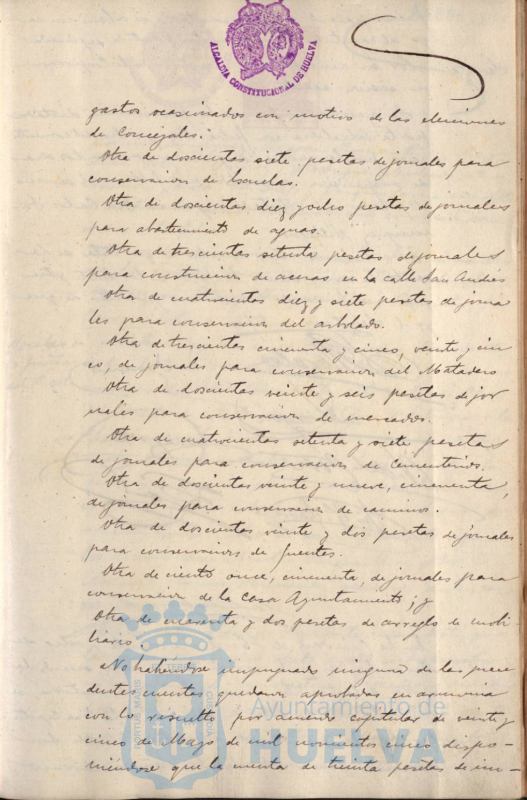 ALCALDIA CONSTITUCIONAL DE HUELVA
gastos ocasionados con motivo de las elecciones
de Concejales.
Otra de doscientas siete pesetas de jornales para
conservacion de Escuelas.
Otra de doscientas diez y ocho pesetas de jornales
para abastecimiento de aguas.
Otra de trescientas setenta pesetas de jornales
para construccion de aceras en la calle San Andrés
Otra de cuatrocientas diez y siete pesetas de jorna
les para conservacion del arbolado.
Otra de trescientas cincuenta y cinco, veinte y cin
co, de jornales para conservacion del Matadero
Otra de doscientas veinte y seis pesetas de jor
nales para conservacion de mercados.
Otra de cuatrocientas setenta y siete pesetas
de jornales para conservacion de Cementerios.
Otra de doscientas veinte y nueve, cincuenta,
de jornales para conservacion de caminos.
Otra de doscientas veinte y dos pesetas de jornales
para conservacion de fuentes.
Otra de ciento once, cincuenta, de jornales para
conservacion de la Casa Ayuntamiento; y
Otra de cuarenta y dos pesetas de arreglo de mobi
liario.
No habiéndose impugnado ninguna de las prece
dentes cuentas quedaron aprobadas en armonia
con lo resuelto por acuerdo capitular de veinte y
cinco de Mayo de mil novecientos cinco dispo-
niéndose que la cuenta de treinta pesetas de im-
Ayuntamiento de
HUELVA